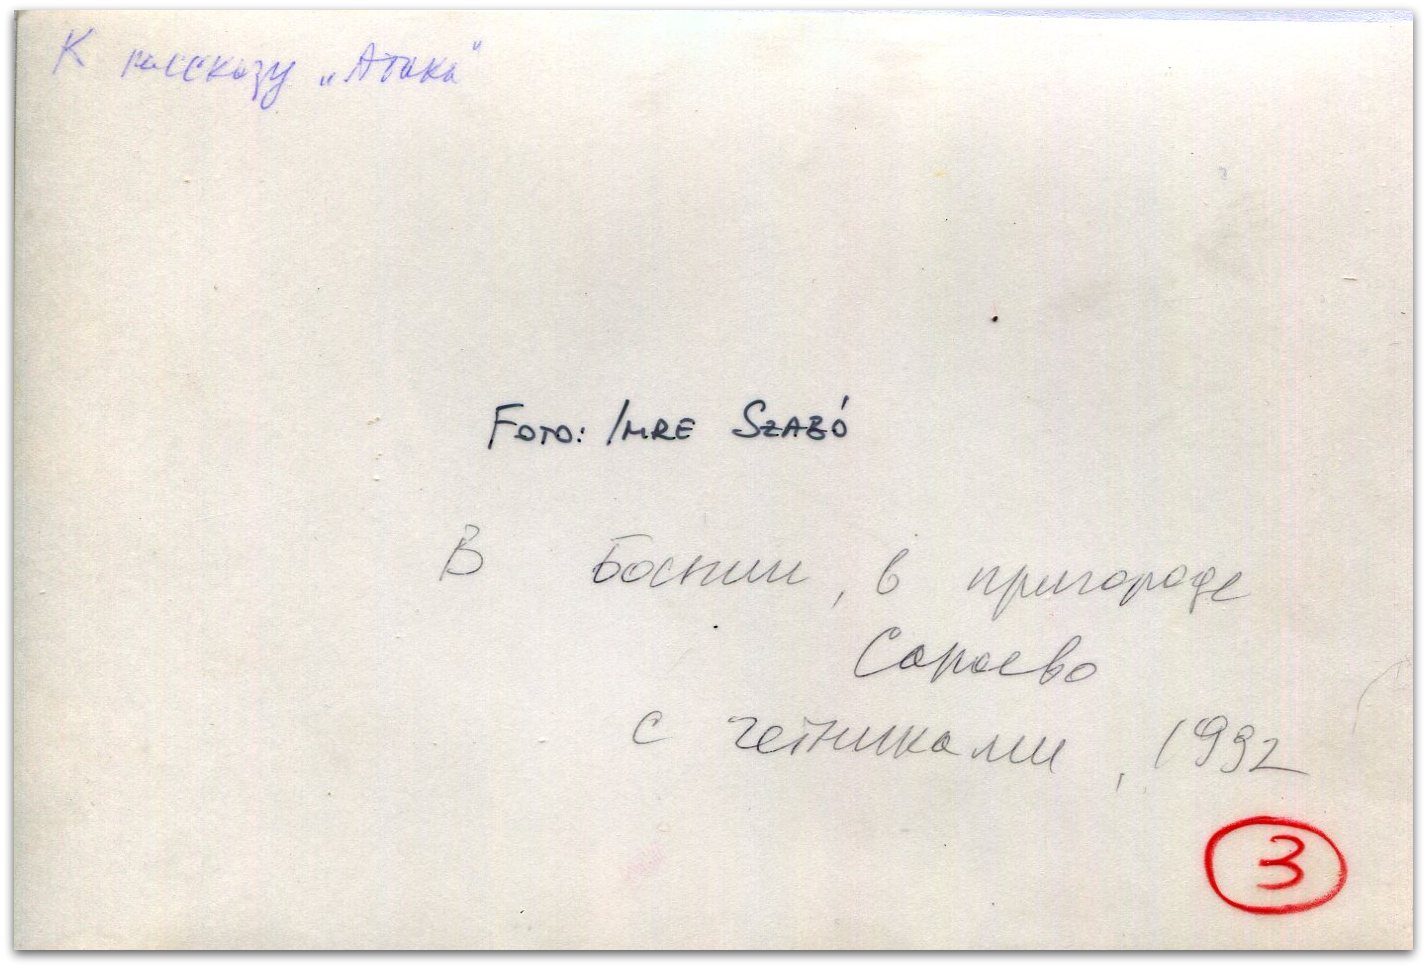 К рассказу „Атака"
FOTO: IMRE SZABÓ
В Боснии, в пригороде
Сараево
с четниками, 1992
3